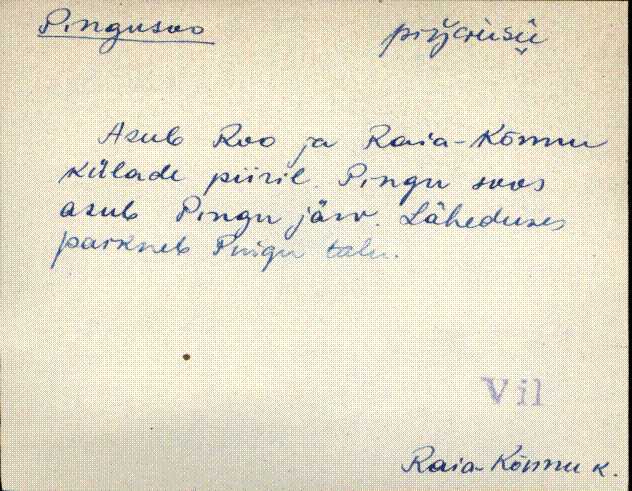 Pingusoo
Asub Roo ja Raia-Kõnnu
külade piiril. Pingu soos
asub Pingu järv. Läheduses
paikneb Pingu talu.
Vil
Raia-Kõnnu k.